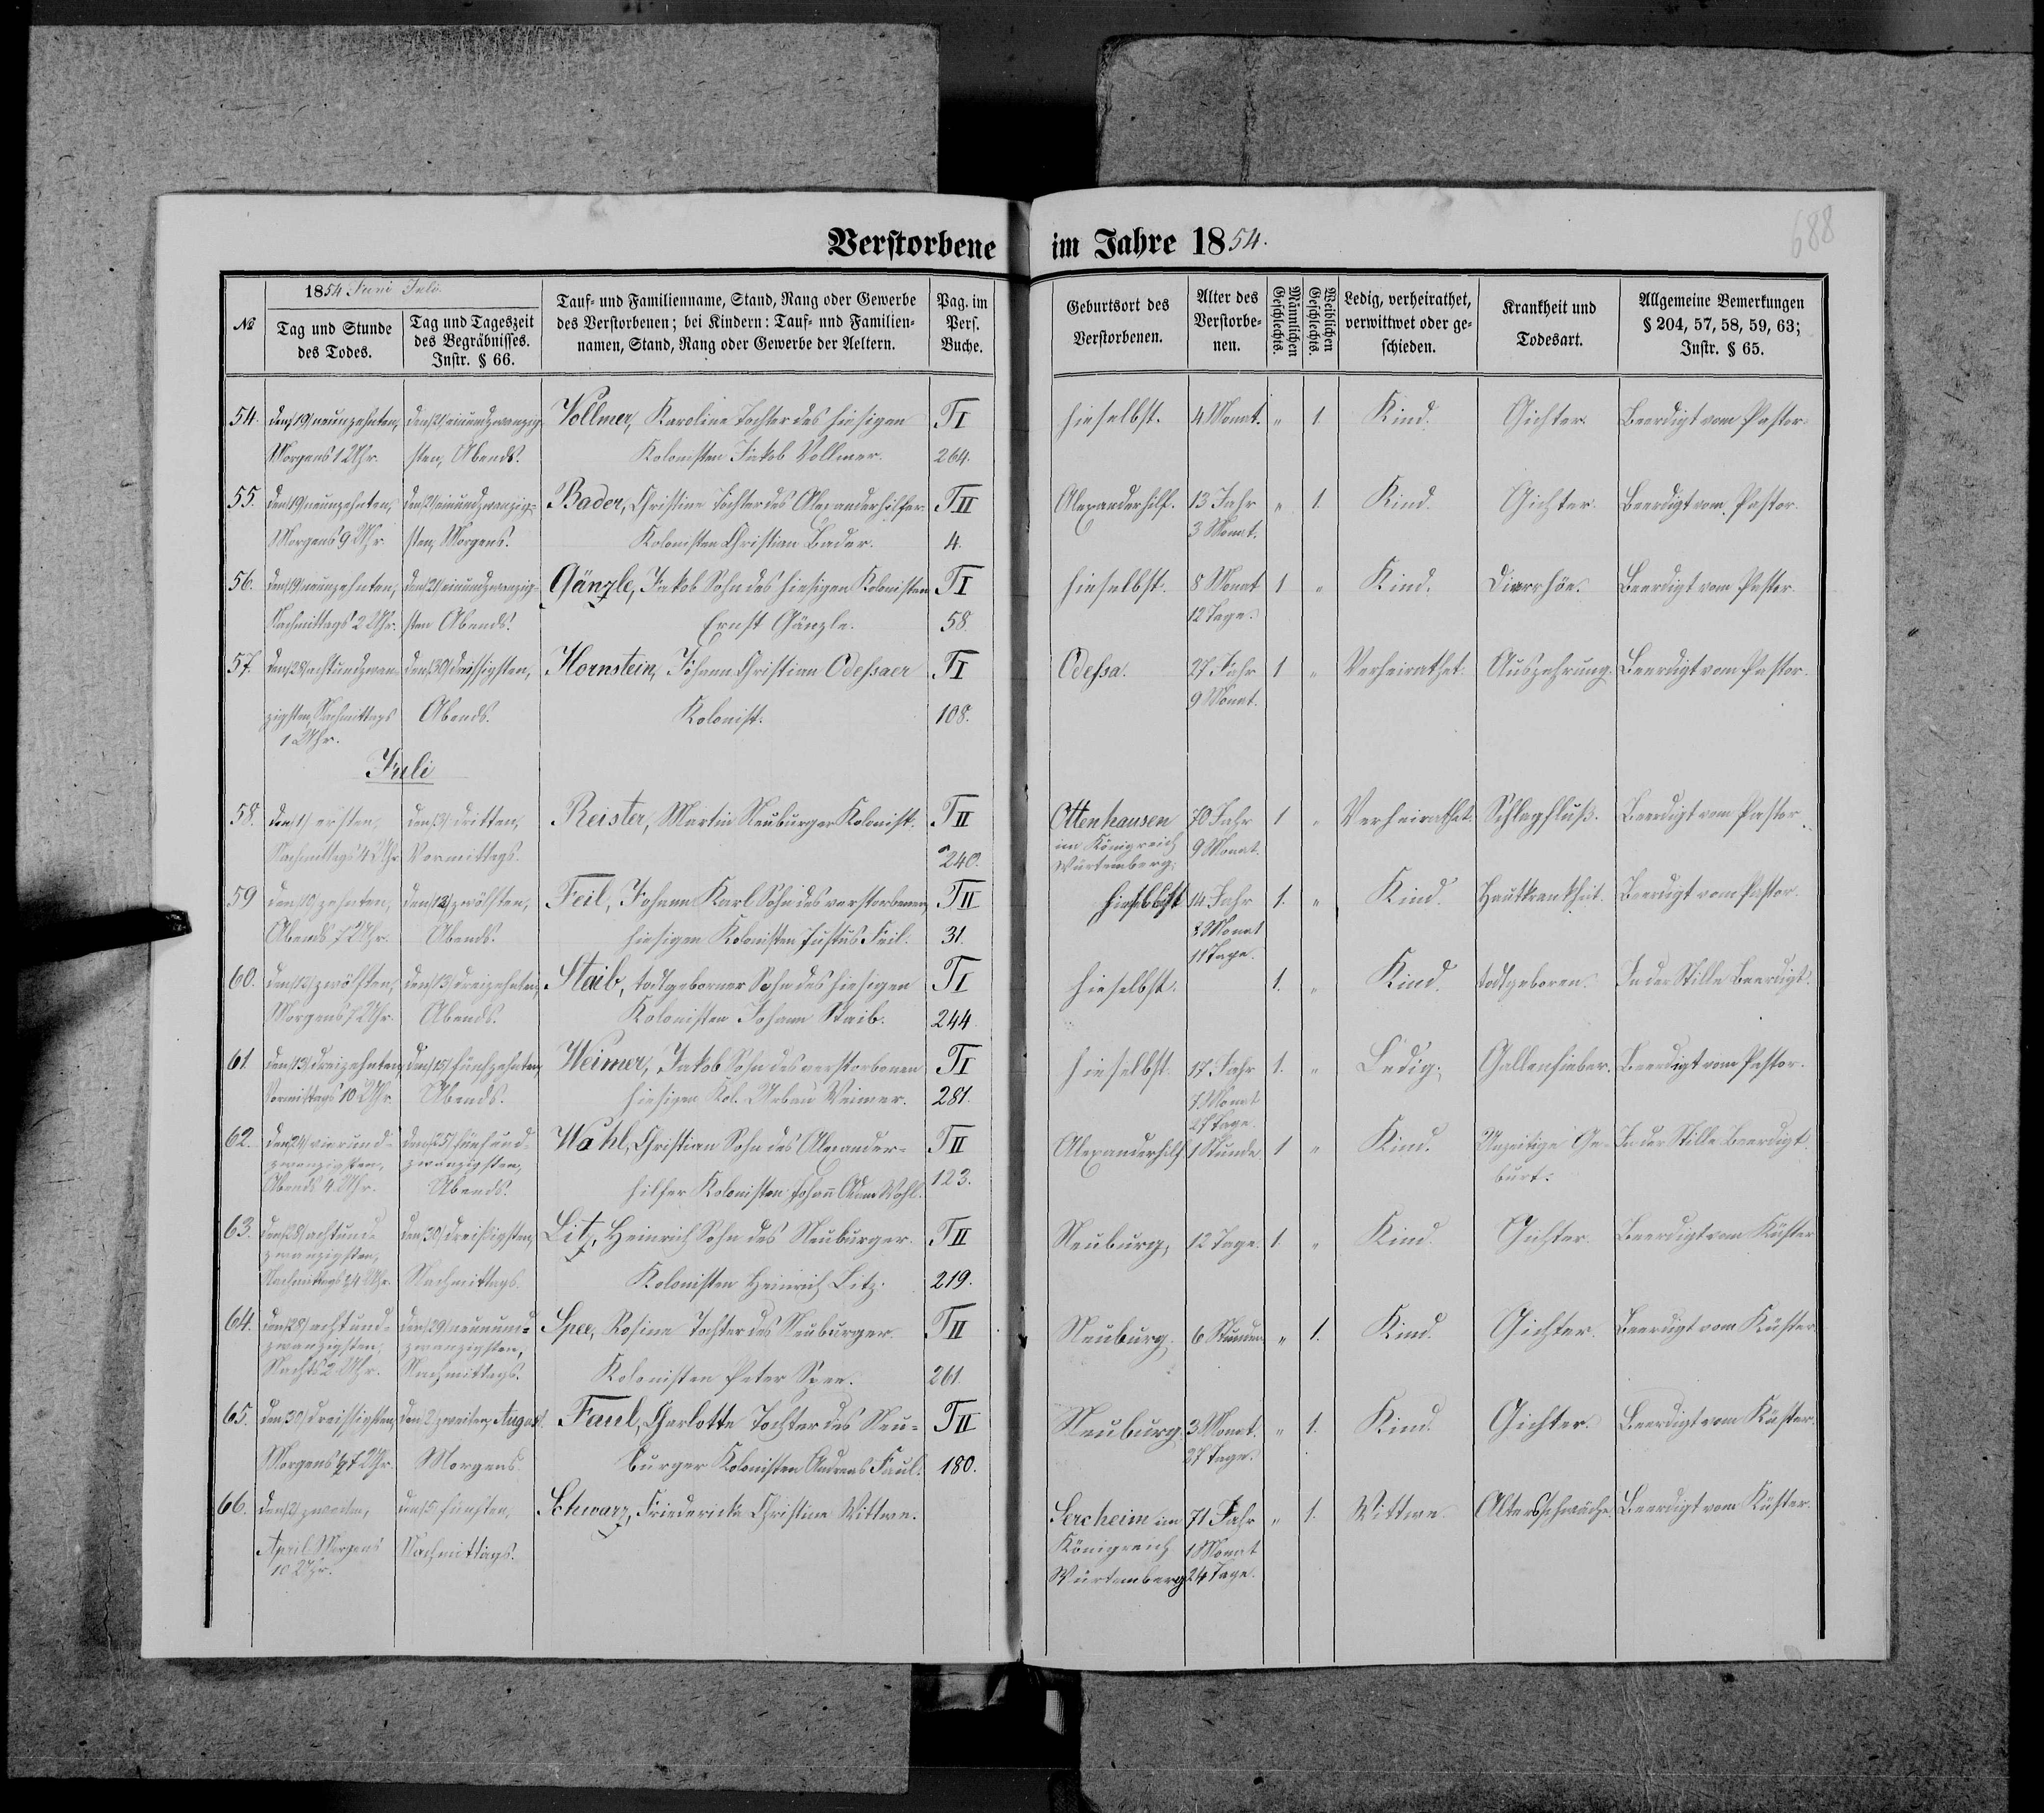 Verstorbene im Jahre 1854.
688
1854 Juni Juli
№
Tag und Stunde des Todes.
Tag und Tageszeit des Begräbnisses. Instr. § 66.
Tauf- und Familienname, Stand, Rang oder Gewerbe des Verstorbenen; bei Kindern: Tauf- und Familien-namen, Stand, Rang oder Gewerbe der Aeltern.
Pag. im Pers. Buche.
Geburtsort des Verstorbenen.
Alter des Verstorbe-nen.
Männlichen Geschlechts.
Weiblichen Geschlechts.
Ledig, verheirathet, verwittwet oder ge-schieden.
Krankheit und Todesart.
Allgemeine Bemerkungen § 204, 57, 58, 59, 63; Instr. § 65.
54. den 19/ neunzehnten, den 21/ einundzwanzig- Vollmer, Karoline Tochter des hiesigen TI hieselbst. 4 Monat. " 1. Kind. Gichter. Beerdigt vom Pastor.
Morgens 1 Uhr. sten, Abends. Kolonisten Jakob Vollmer. 264.
55. den 19/ neunzehnten, den 21/ einundzwanzig- Bader, Christine Tochter des Alexanderhilfer TII Alexanderhilf. 13 Jahr " 1. Kind. Gichter. Beerdigt vom Pastor.
Morgens 9 Uhr. sten, Morgens. Kolonisten Christian Bader. 4. 3 Monat.
56. den 19/ neunzehnten, den 21/ einundzwanzig- Gänzle, Jakob Sohn des hiesigen Kolonisten TI hieselbst. 8 Monat 1 " Kind. Diarrhöe. Beerdigt vom Pastor.
Nachmittags 2 Uhr. sten Abends. Ernst Gänzle. 58. 12 Tage.
57. den 28/ achtundzwan- den 30/ dreissigsten, Hornstein, Johann Christian Odessaer TI Odessa. 27 Jahr 1 " Verheirathet. Auszehrung. Beerdigt vom Pastor.
zigsten, Nachmittags Abends. Kolonist. 108. 9 Monat.
1 Uhr.
Juli
58. den 1/ ersten, den 3/ dritten, Reister, Martin Neuburger Kolonist. TII Ottenhausen 70 Jahr 1 " Verheirathet. Schlagfluß. Beerdigt vom Pastor.
Nachmittags 4 Uhr Vormittags. 240. im Königreich 9 Monat.
Würtemberg.
59 den 10/ zehnten, den 12/ zwölften, Feil, Johann Karl Sohn des verstorbenen TII hieselbst 14 Jahr 1. " Kind. Hautkrankheit. Beerdigt vom Pastor.
Abends 7 Uhr. Abends. hiesigen Kolonisten Justus Feil. 31. Monat
11 Tage.
60. den 12/ zwölften, den 13/ dreizehnten, Staib, todtgeborner Sohn des hiesigen TI hieselbst. 1. " Kind. todtgeboren. In der Stille Beerdigt.
Morgens 7 Uhr. Abends. Kolonisten Johann Staib. 244.
61. den 13/ dreizehnten, den 15/ fünfzehnten, Weimer, Jakob Sohn des verstorbenen TI hieselbst. 17 Jahr 1. " Ledig. Gallenfieber. Beerdigt vom Pastor.
Vormittags 10 Uhr. Abends. hiesigen Kol. Urban Weimer. 281. 7 Monat
27 Tage.
62. den 24/ vierund- den 25/ fünfund- Wohl, Christian Sohn des Alexander- TII Alexanderhilf 1 Stunde 1 " Kind. Unzeitige Ge- In der Stille Beerdigt.
zwanzigsten, zwanzigsten,
Abends 4 Uhr. Abends. hilfer Kolonisten Johann Adam Wohl. 123. burt.
63. den 28/ achtund- den 30/ dreißigsten, Litz, Heinrich Sohn des Neuburger TII Neuburg, 12 Tage. 1. " Kind. Gichter. Beerdigt vom Küster
zwanzigsten,
Nachmittags 4 Uhr. Nachmittags. Kolonisten Heinrich Litz. 219.
64. den 28/ achtund- den 29/ neunund- Spee, Rosine Tochter des Neuburger TII Neuburg, 6 Stunden " 1. Kind. Gichter. Beerdigt vom Küster.
zwanzigsten, zwanzigsten,
Nachts 2 Uhr. Nachmittags. Kolonisten Peter Spee. 261
65. den 30/ dreissigsten, den 2/ zweiten, August. Faul, Charlotte Tochter des Neu- TII Neuburg. 3 Monat. " 1. Kind. Gichter. Beerdigt vom Küster.
Morgens Uhr. Morgens. burger Kolonisten Andreas Faul. 180. 27 Tage.
66. den 2/ zweiten, den 5/ fünften, Schwarz, Friedericke Christine Wittwe. Sercheim im 71 Jahr " 1. Wittwe. Altersschwäche. Beerdigt vom Küster.
April Morgens Nachmittags. Königreich 1 Monat
10 Uhr. Würtemberg 24 Tage.